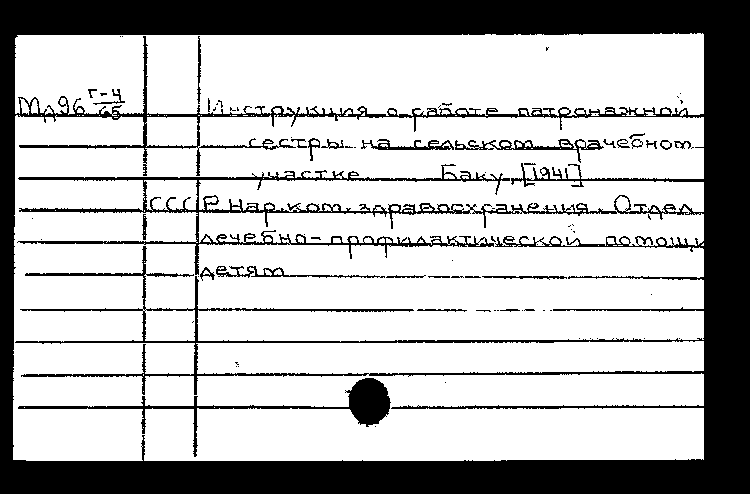 Мд96 Г-4/65 Инструкция о работе патронажной
сестры на сельском врачебном
участке. Баку, [1941]
СССР. Нар. ком. здравоохранения. Отдел
лечебно-профилактической помощи
детям